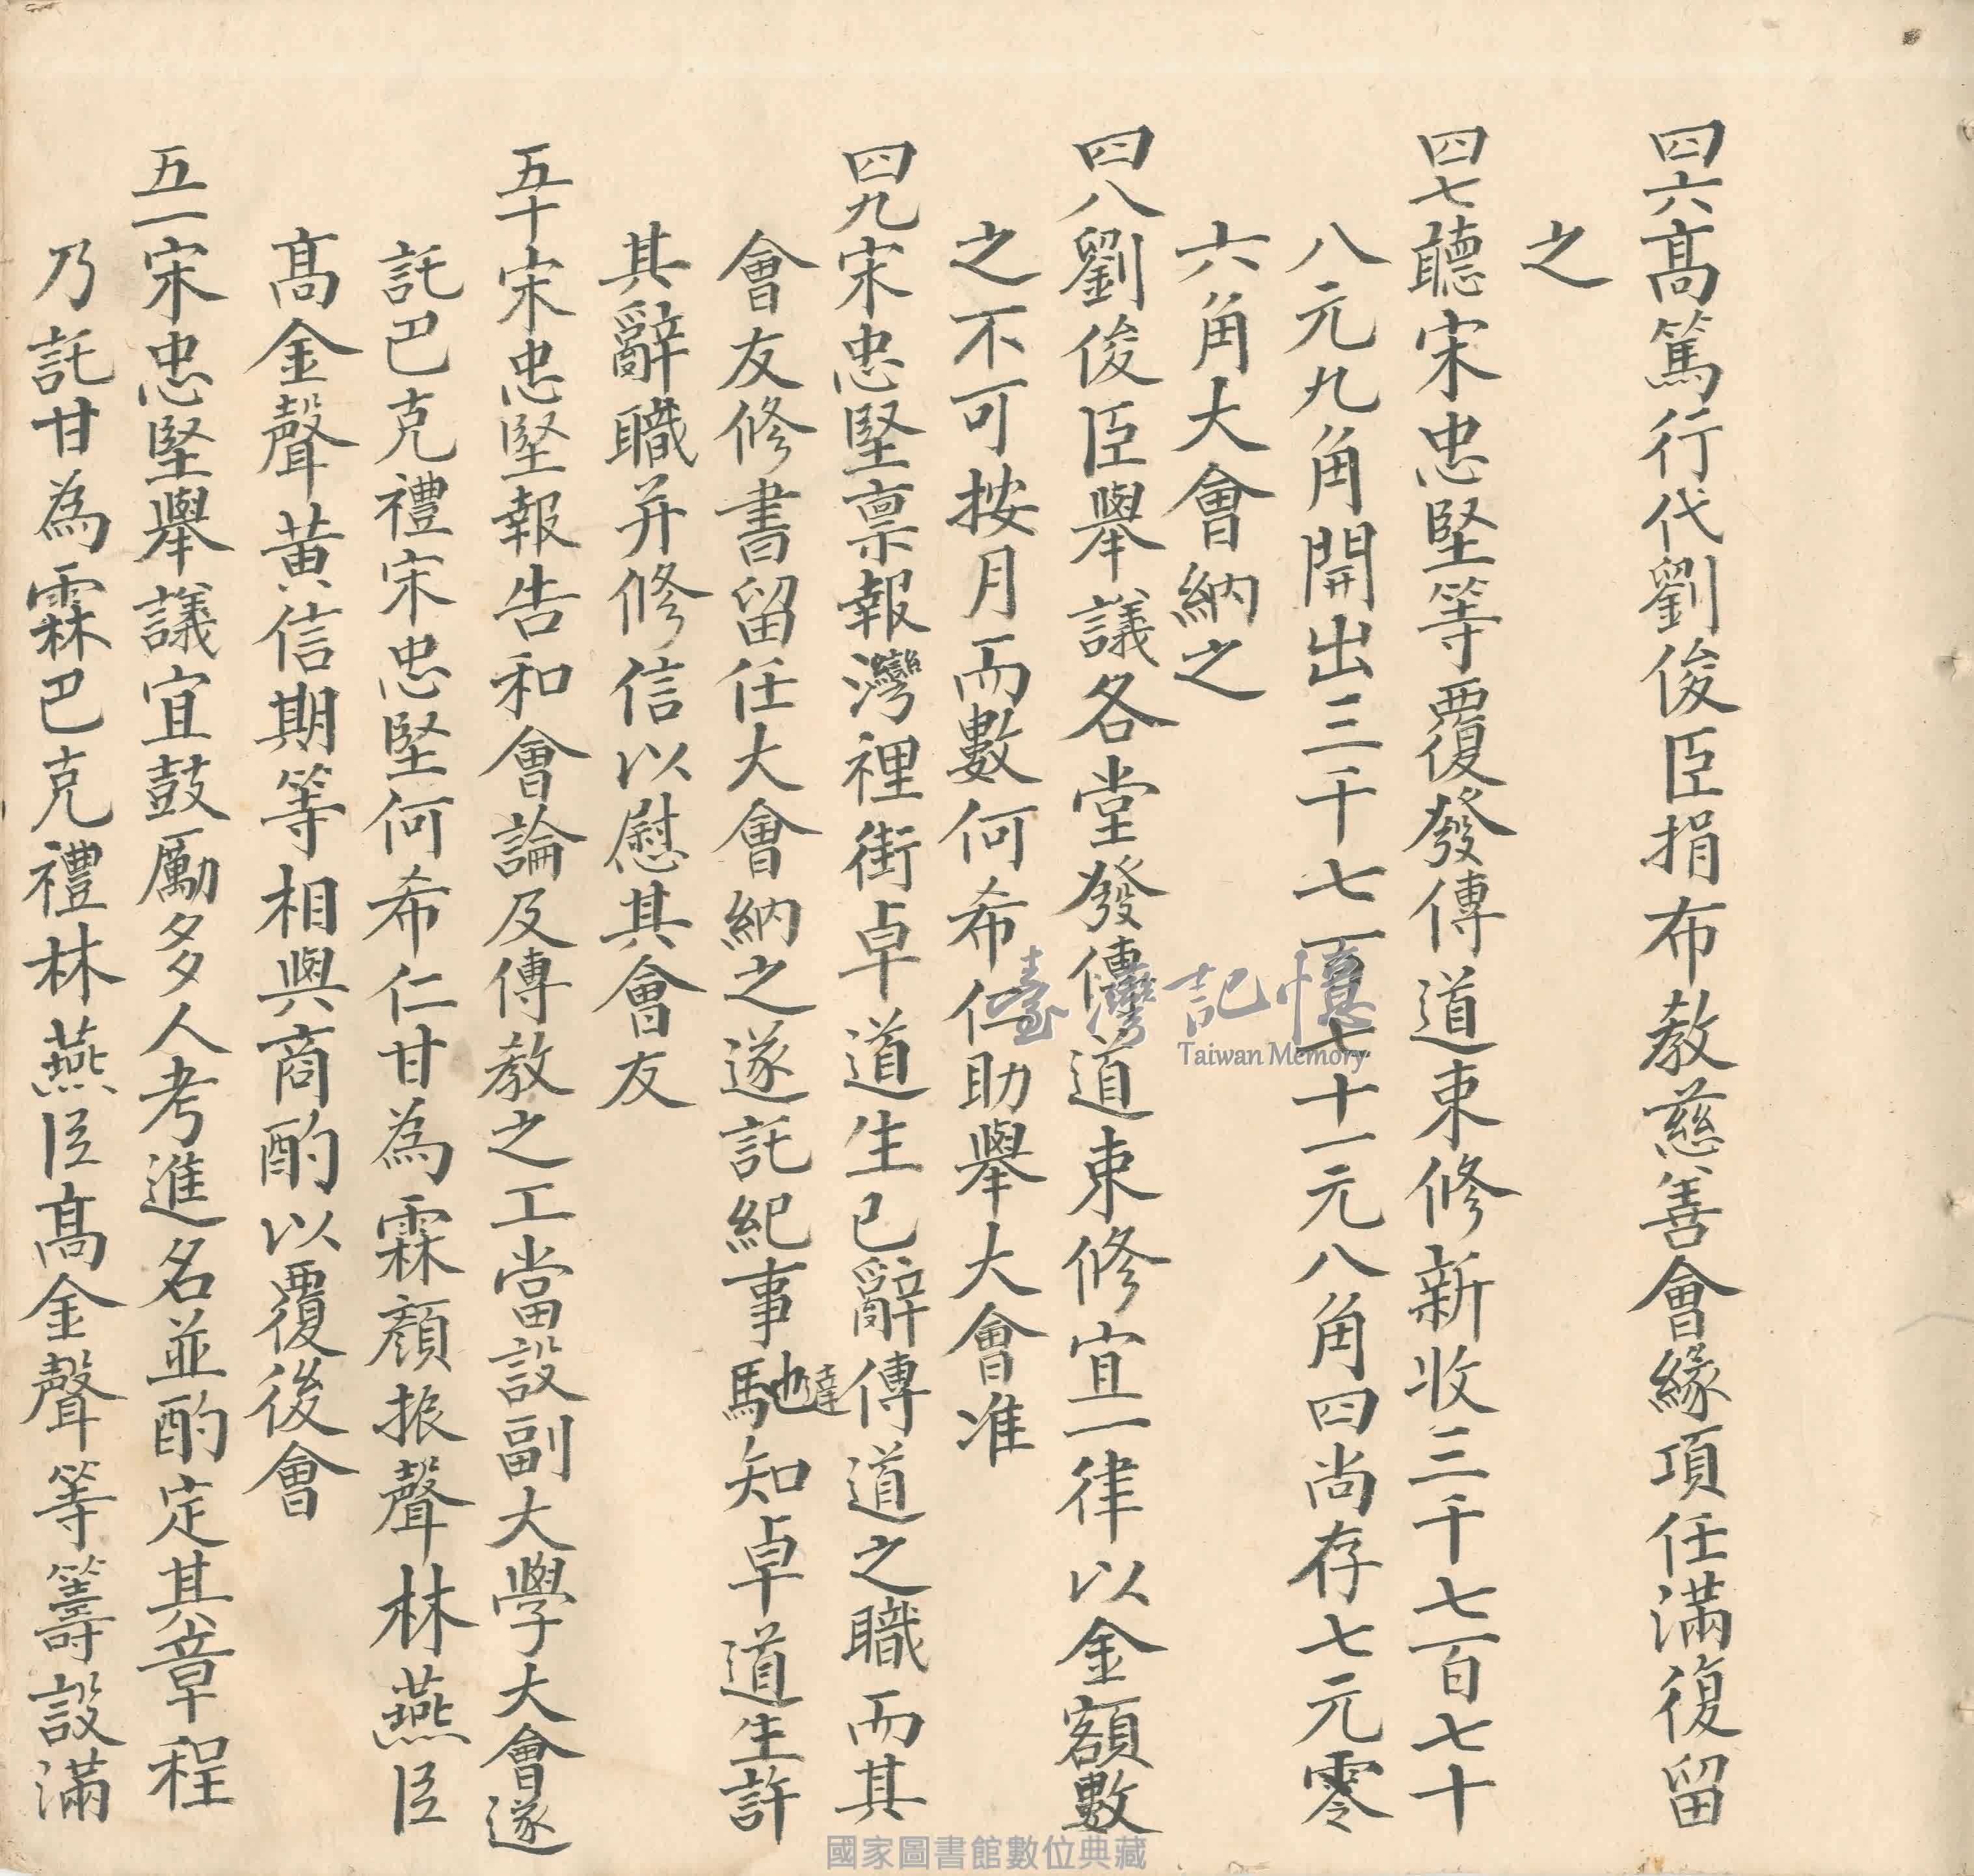 四六高篤行代劉俊臣捐布教慈善會緣項任滿復留
之
四七聽宋忠堅等覆發傳道束修新收三千七百七十
八元九角開出三千七百七十一元八角四尚存七元零
六角大會納之
四八劉俊臣舉議各堂發傳道束修宜一律以金額數
之不可按月而數何希仁助舉大會准
四九宋忠堅禀報灣裡街卓道生已辭傳道之職而其
會友修書留任大會納之遂託紀事馳達知卓道生許
其辭職并修信以慰其會友
五十宋忠堅報告和會論及傳教之工當設副大學大會遂
託巴克禮宋忠堅何希仁甘為霖顏振聲林燕臣
高金聲黃信期等相與商酌以覆後會
五一宋忠堅舉議宜鼓勵多人考進名並酌定其章程
乃託甘為霖巴克禮林燕臣高金聲等籌設滿
臺灣記憶
Taiwan Memory
國家圖書館數位典藏